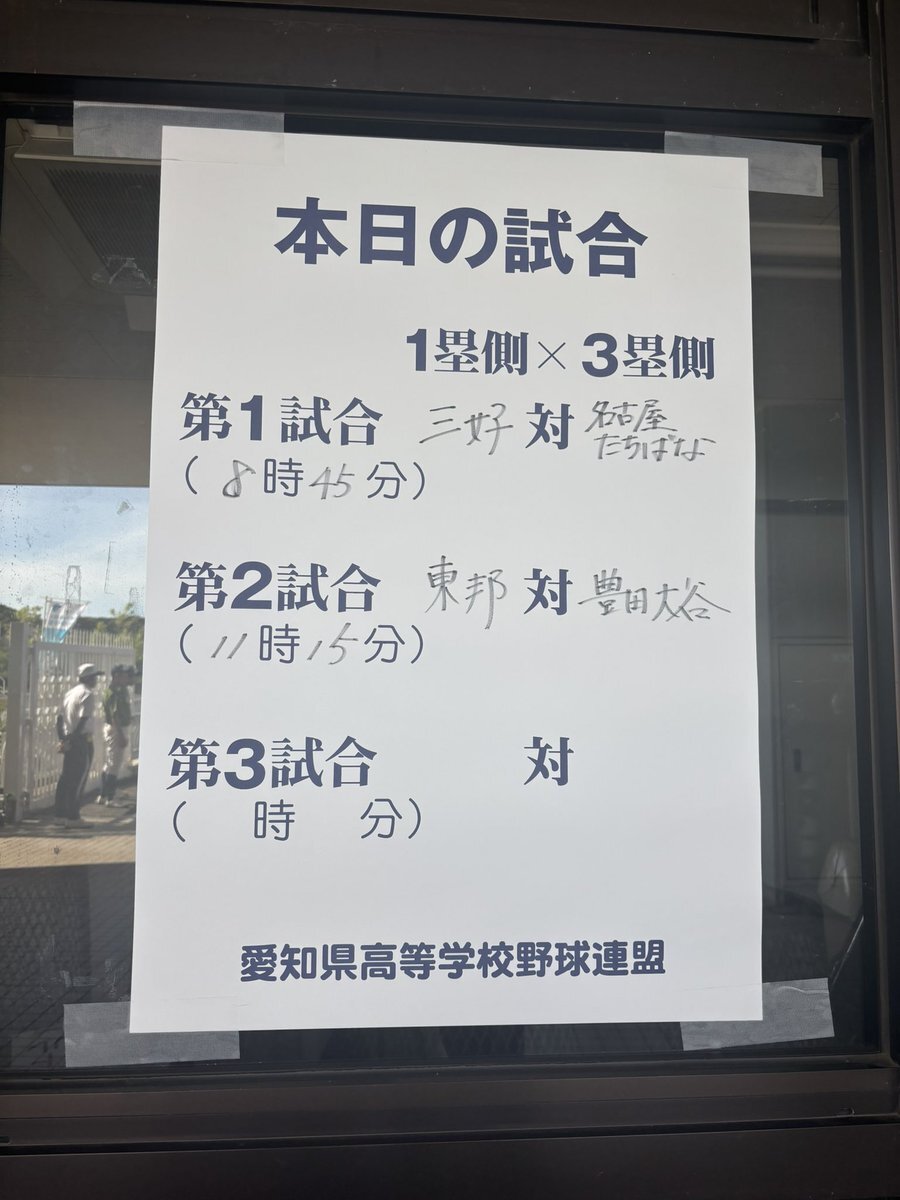 本日の試合
1塁側×3塁側
第1試合 三好 対 名古屋たちばな
(8時45分)
第2試合 東邦 対 豊田大谷
(11時15分)
第3試合 対
( 時 分)
愛知県高等学校野球連盟